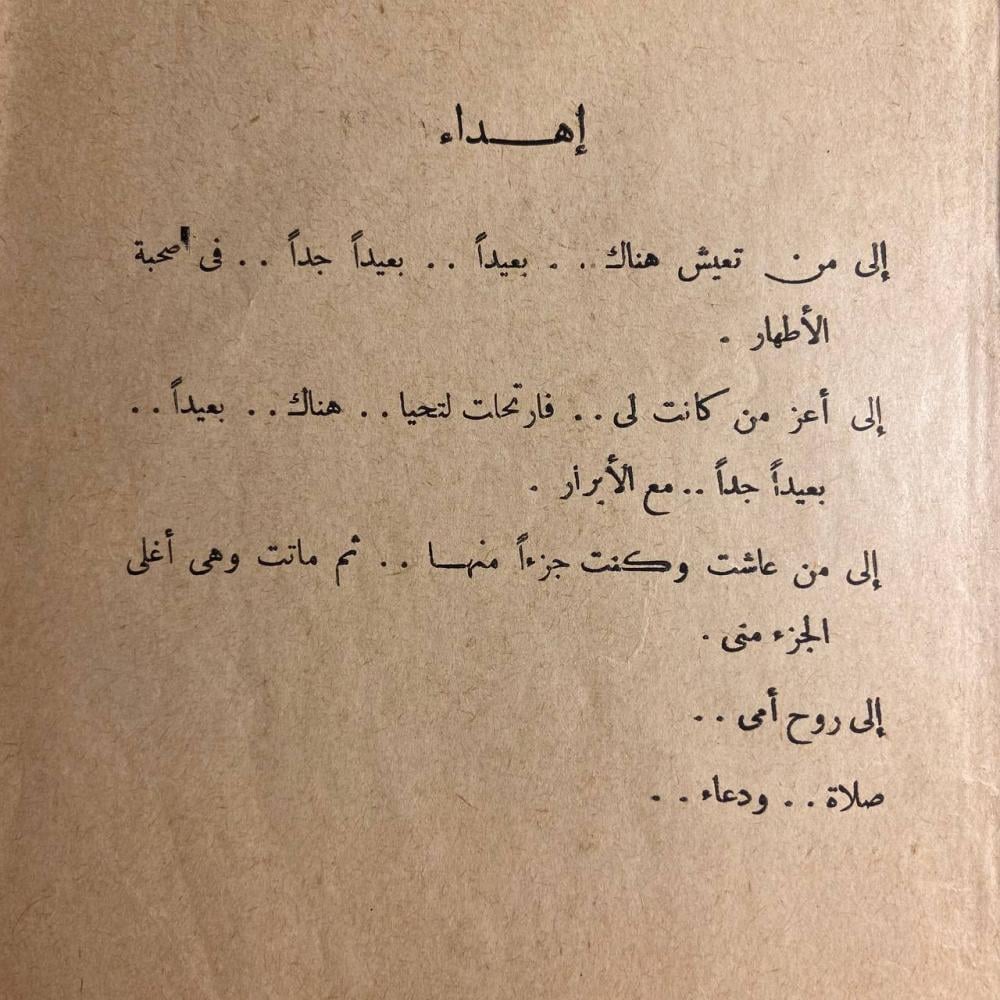 إهداء
إلى من تعيش هناك . . بعيداً . . بعيداً جداً . . فى صحبة
الأطهار .
إلى أعز من كانت لى . . فارتحلت لتحيا . . هناك . . بعيداً . .
بعيداً جداً . . مع الأبرار .
إلى من عاشت وكنت جزءاً منها . . ثم ماتت وهى أغلى
الجزء منى .
إلى روح أمى . .
صلاة . . ودعاء . .